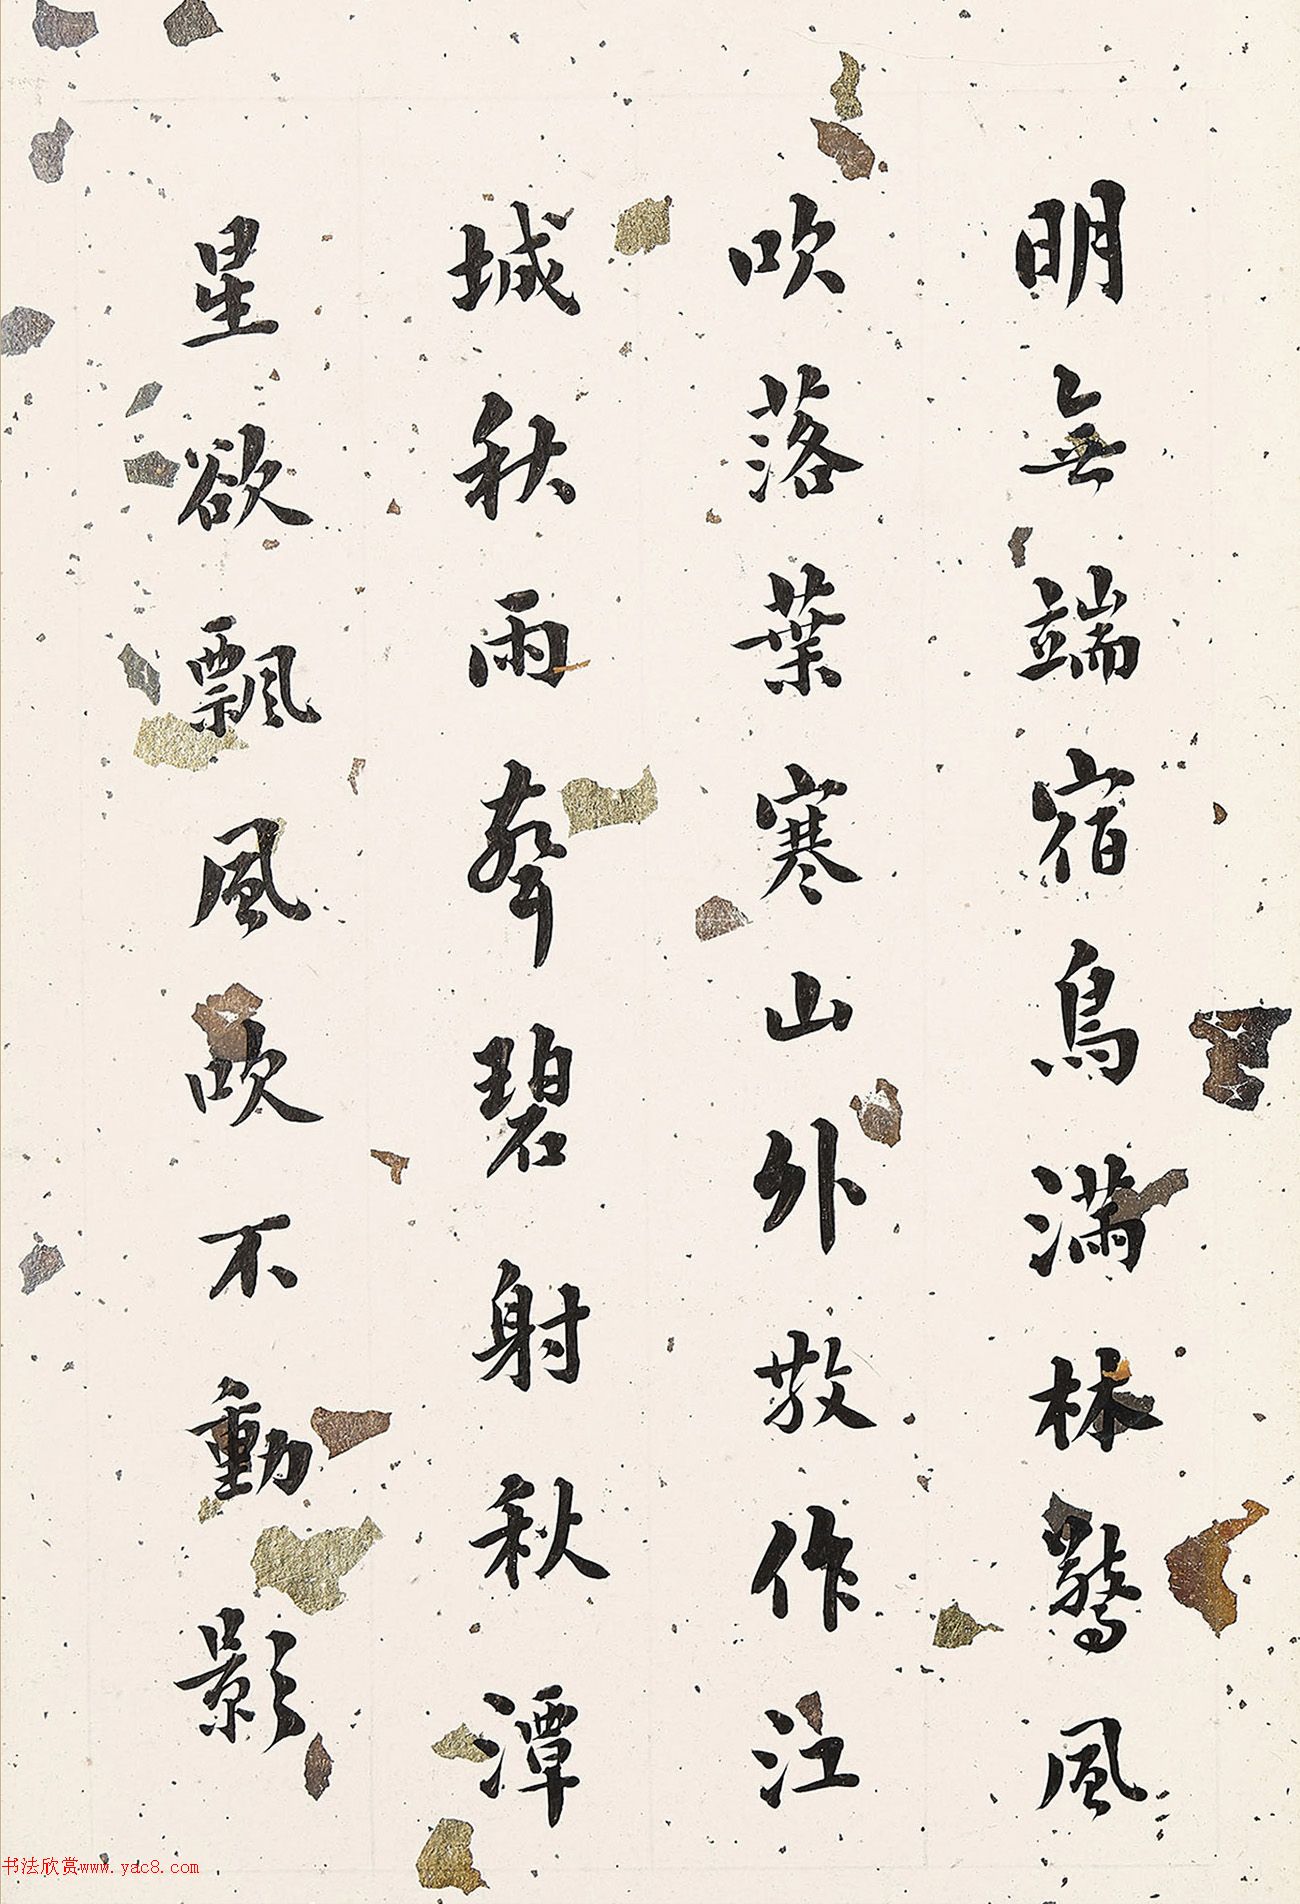 明無端宿鳥滿林驚風
吹落葉寒山外散作江
城秋雨聲碧射秋潭
星欲飄風吹不動影
书法欣赏www.yac8.com